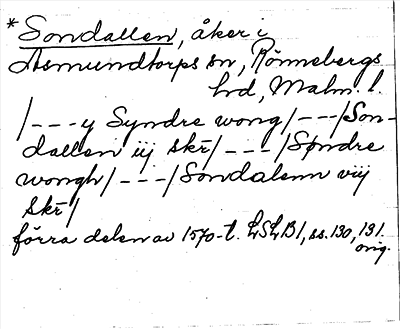 * Sondallen, åker i
Asmundtorps sn, Rönnebergs
hd, Malm. l.
/---y Syndre wong/---/Son-
dallen iij skr̄/---/Søndre
wongh/---/Sondalenn viij
skr̄/
förra delen av 1570-t. LSLB1, ss. 130, 131.
orig.